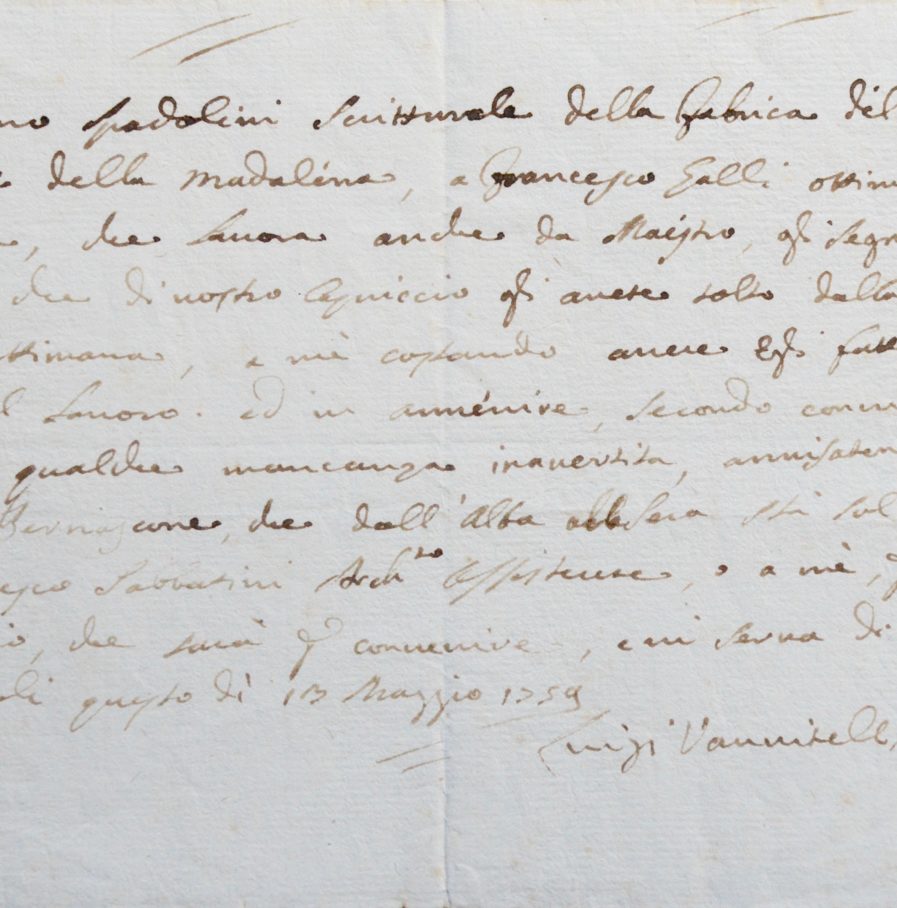 no Spadolini Scritturale della Fabrica del
della Madaléna, a Francesco Galli ottim
, che Lavora anche da Maéstro, gli segn
che di vostro Capriccio gli avete tolto dalla
ttimana, a mè costando avere Egli fatt
l Lavoro. ed in avvénire, secondo
qualche mancanza inavertita, avvisaten
Bernascone, che dall'Alba alla Sera stà sul
esco Sabbatini Archto Assistente, o a mè,
io, che sarà convenire, e vi serva di
oli questo dì 13 Maggio 1759
Luigi Vanvitell